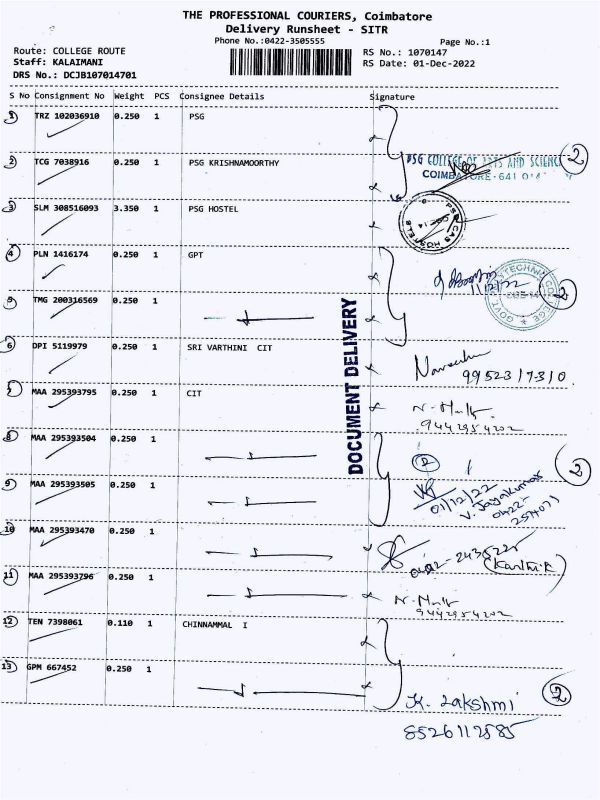 THE PROFESSIONAL COURIERS, Coimbatore
Delivery Runsheet - SITR
Phone No.:0422-3505555
Page No.:1
Route: COLLEGE ROUTE
RS No.: 1070147
Staff: KALAIMANI
RS Date: 01-Dec-2022
DRS No.: DCJB107014701
S No Consignment No Weight PCS Consignee Details Signature
1 TRZ 102036910 0.250 1 PSG
2 TCG 7038916 0.250 1 PSG KRISHNAMOORTHY
PSG COLLEGE OF ARTS AND SCIENCE 2
COIMBATORE - 641 014
3 SLM 308516093 3.350 1 PSG HOSTEL
PSG CAS HOSTELS
4 PLN 1416174 0.250 1 GPT
2
5 TMG 200316569 0.250 1
DOCUMENT DELIVERY
6 DPI 5119979 0.250 1 SRI VARTHINI CIT
99523 17310
7 MAA 295393795 0.250 1 CIT
9442954202
8 MAA 295393504 0.250 1
2
2
9 MAA 295393505 0.250 1
01/12/22
V. Jayakumar
0422-
10 MAA 295393470 0.250 1
(Karthik)
11 MAA 295393796 0.250 1
9442954202
12 TEN 7398061 0.110 1 CHINNAMMAL I
13 GPM 667452 0.250 1
K. Lakshmi 2
8526112585